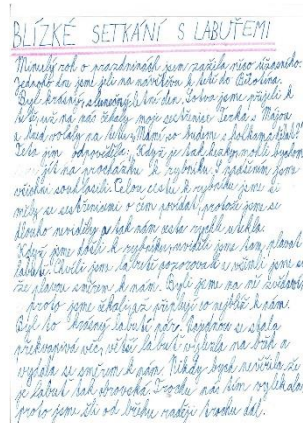 BLÍZKÉ SETKÁNÍ S LABUTĚMI
Minulý rok o prázdninách jsem zažila něco úžasného.
Jednoho dne jsme jeli na návštěvu k tetě do
Byl krásný, slunečný letní den. Sotva jsme přijeli k
tetě, už na nás čekaly moje sestřenice Terka a Májna
a hned volaly na tetu: „Mámo co budeme s holkama dělat?"
Teta jim odpověděla: Když je tak hezky, mohli bychom
jít na procházku k rybníku. S nadšením jsme
všichni souhlasili. Celou cestu k rybníku jsme si
měly se sestřenicemi o čem povídat, protože jsme se
dlouho neviděly a tak nám cesta rychle utekla.
Když jsme došli k rybníku, uviděli jsme tam plavat
labutě. Chvíli jsme labutě pozorovali a všimli jsme si,
že plavou směrem k nám. Byli jsme na ně zvědaví,
proto jsme čekali, až připlují co nejblíž k nám.
Byl to krásný labutí pár. Najednou se stala
překvapivá věc, větší labuť vylezla na břeh a
vydala se směrem k nám. Nikdy bych nevěřila, že
je labuť tak obrovská. Trochu nás tím vylekala,
proto jsme šli od břehu raději trochu dál.